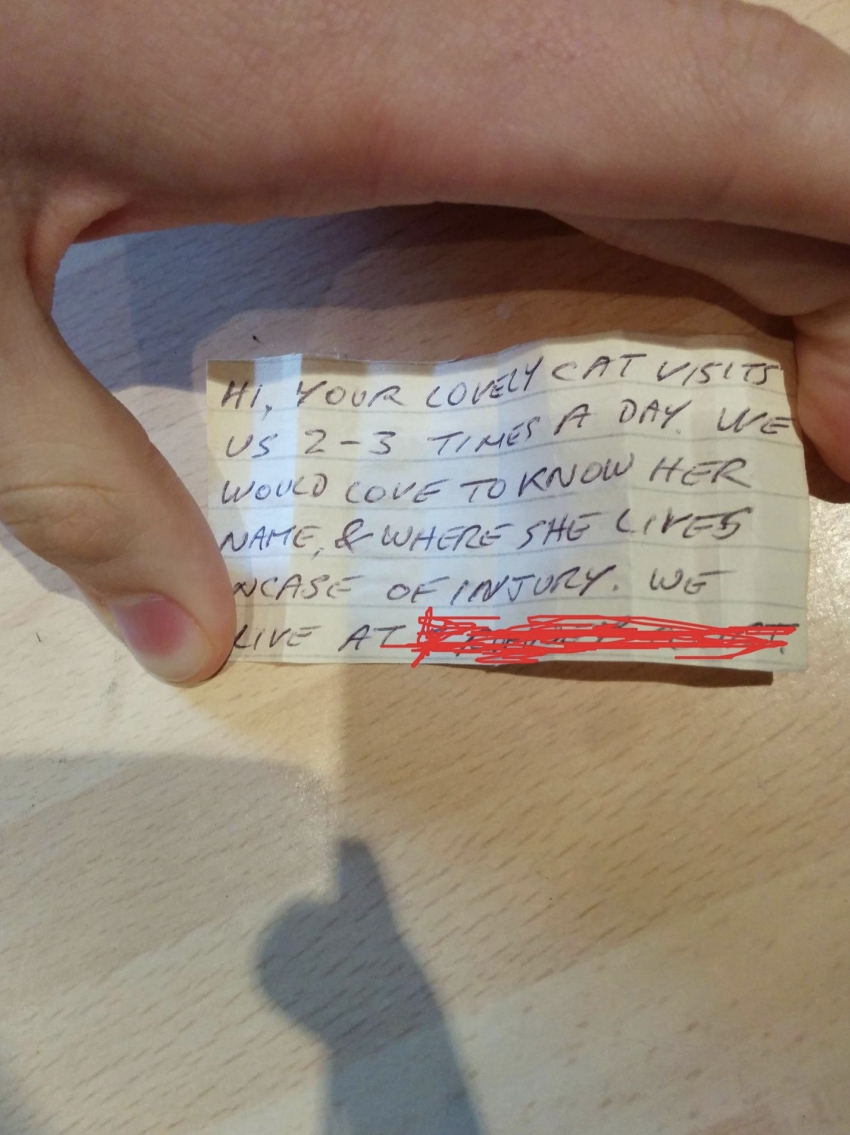 HI, YOUR LOVELY CAT VISITS
US 2-3 TIMES A DAY. WE
WOULD LOVE TO KNOW HER
NAME, & WHERE SHE LIVES
NCASE OF INJURY. WE
LIVE AT